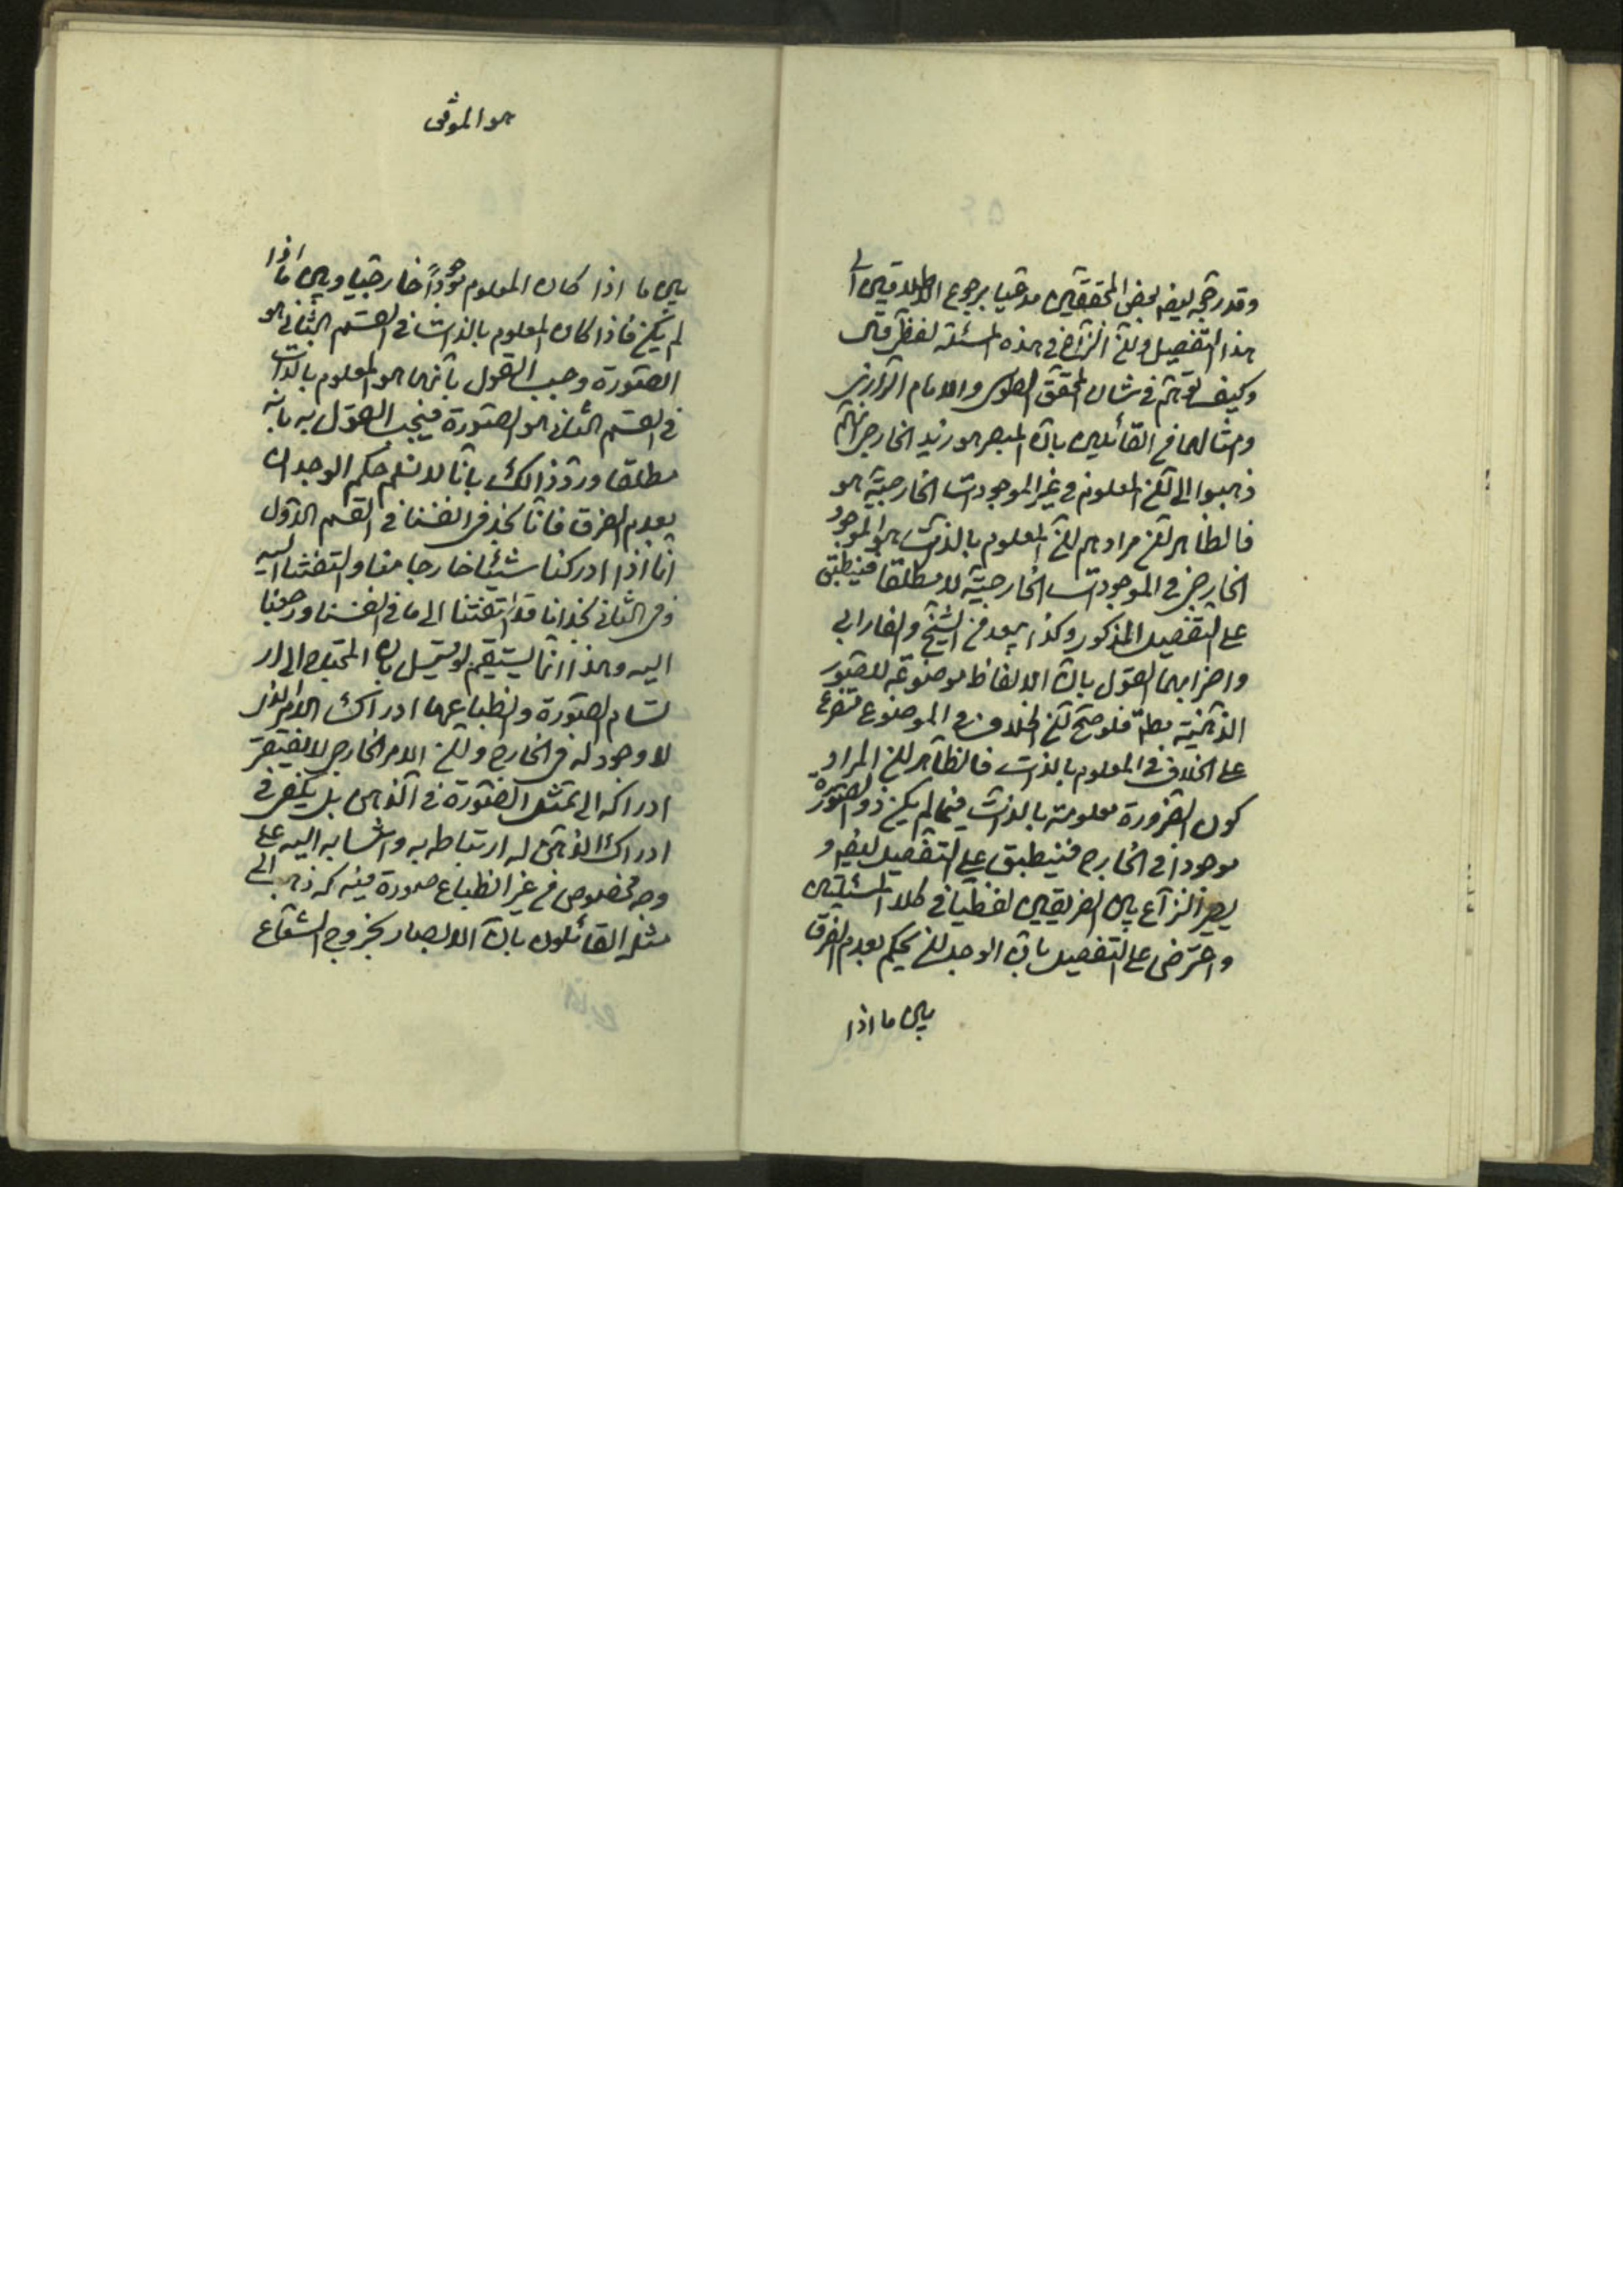 وقد رجحه ايضا بعض المحققين مدعيا برجوع الاطلاقين الى
هذا التفصيل وان النزاع في هذه المسئلة لفظى قال
وكيف يتوهم في شان المحقق الطوسى والامام الرازى
وامثالهما من القائلين بان المبصر هو زيد الخارجى انهم
ذهبوا الى ان المعلوم في غير الموجودات الخارجية هو
فالظاهر ان مرادهم ان المعلوم بالذات هو الموجود
الخارجى في الموجودات الخارجية لا مطلقا فينطبق
على التفصيل المذكور وكذا يبعد من الشيخ والفارابى
واضرابهما القول بان الالفاظ موضوعة للصور
الذهنية مطلقا فلو صح ان الخلاف في الموضوع متفرع
على الخلاف في المعلوم بالذات فالظاهر ان المراد
كون الضرورة معلومة بالذات فيما لم يكن ذو الصورة
موجودا في الخارج فينطبق على التفصيل ايضا و
يصير النزاع بين الفريقين لفظيا في كلا المسئلتين
واعترض على التفصيل بان الوجدان يحكم بعدم الفرق
بين ما اذا
هو الموفق
بين ما اذا كان المعلوم موجوداً خارجيا وبين ما اذا
لم يكن فاذا كان المعلوم بالذات في القسم الثانى هو
الصورة وجب القول بانها هو المعلوم بالذات
في القسم الثانى هو الصورة فيجب القول به بانه
مطلقا ورد ذالك بانا لا نسلم حكم الوجدان
بعدم الفرق فانا نجد في انفسنا في القسم الاول
انا اذا ادركنا شيئا خارجا منا والتفتنا اليه
وفى الثانى نجد انا قد التفتنا الى ما في انفسنا ورجعنا
اليه وهذا انما يستقيم لو قيل بان المحتاج الى ار
تسام الصورة وانطباعها ادراك الامر الذى
لا وجود له في الخارج وان الامر الخارجى لا يفتقر
ادراكه الى تمثل الصورة في الذهن بل يكفى في
ادراك الذهن له ارتباطه به وانتسابه اليه على
وجه مخصوص من غير انطباع صورة فيه كما ذهب الى
مثله القائلون بان الابصار بخروج الشعاع